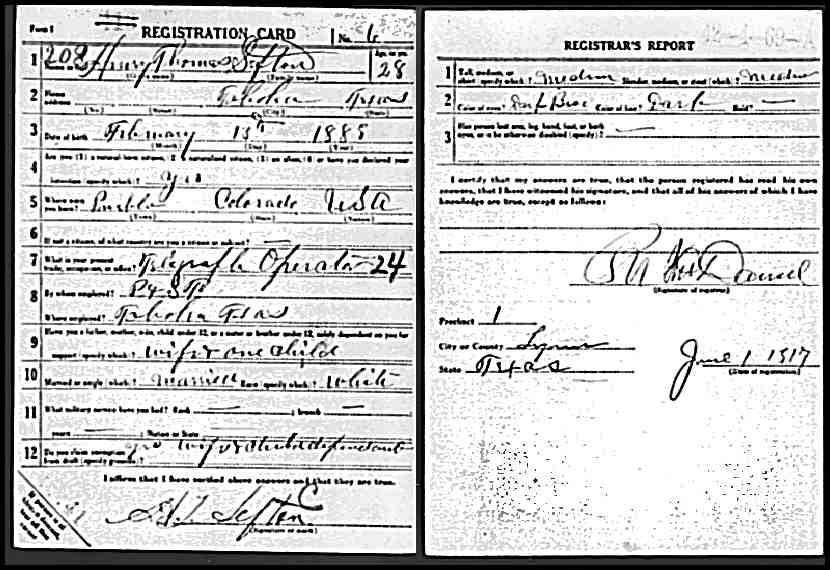 Form 1 REGISTRATION CARD No. 6
1 202 Henry Thomas Sefton Age, in yrs. 28
(Given name) (Family name)
2 Home address Tahoka Texas
(No.) (Street) (City) (State)
3 Date of birth February 13th 1885
(Month) (Day) (Year)
4 Are you (1) a natural born citizen, (2) a naturalized citizen, (3) an alien, (4) or have you declared your
intention (specify which)? yes
5 Where were you born? Pueblo Colorado USA
(Town) (State) (Nation)
6 If not a citizen, of what country are you a citizen or subject?
7 What is your present trade, occupation, or office? Telegraph Operator 24
8 By whom employed?
Where employed? Tahoka Texas
9 Have you a father, mother, wife, child under 12, or a sister or brother under 12, solely dependent on you for
support (specify which)? Wife & one child
10 Married or single (which)? Married Race (specify which)? White
11 What military service have you had? Rank — ; branch —
years — ; Nation or State —
12 Do you claim exemption from draft (specify grounds)? yes wife & child dependent
I affirm that I have verified above answers and that they are true.
H T Sefton
(Signature or mark)
REGISTRAR'S REPORT
42-1-69-A
1 Tall, medium, or short (specify which)? Medium Slender, medium, or stout (which)? Medium
2 Color of eyes? Color of hair? Dark Bald? —
3 Has person lost arm, leg, hand, foot, or both
eyes, or is he otherwise disabled (specify)? —
I certify that my answers are true, that the person registered has read his own
answers, that I have witnessed his signature, and that all of his answers of which I have
knowledge are true, except as follows:
(Signature of registrar)
Precinct 1
City or County Lynn
State Texas
June 1 1917
(Date of registration)